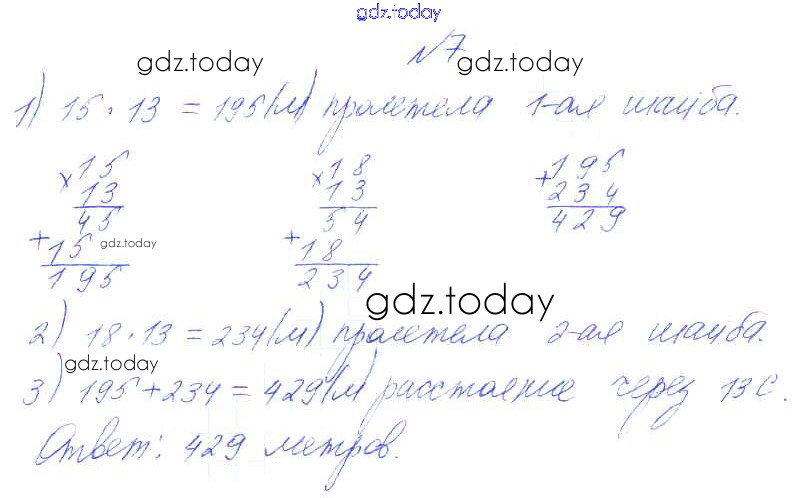 gdz.today
№7
gdz.today gdz.today
1) 15 · 13 = 195 (м) пролетела 1-ая шайба.
× 15 × 18 + 195
13 13 234
45 54 429
+ 15 gdz.today + 18
195 234
gdz.today
2) 18 · 13 = 234 (м) пролетела 2-ая шайба.
gdz.today
3) 195 + 234 = 429 (м) расстояние через 13 с.
Ответ: 429 метров.